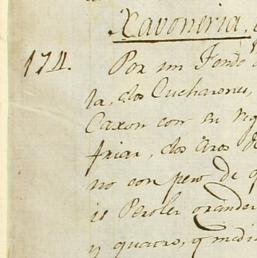 Xavoneria,
174. Por un Fondo
la, dos Cucharones,
Caxon con su
friar, dos Aros de
no con peso de
is Peroles grandes
y quatro, q medi